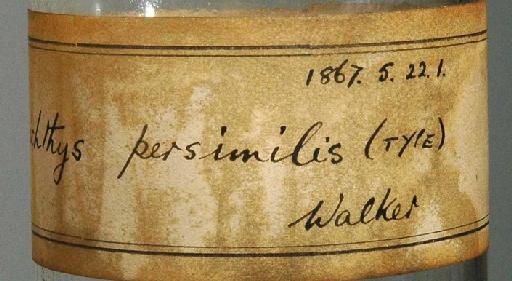 1867. 5. 22. 1.
chthys persimilis (TYPE)
Walker